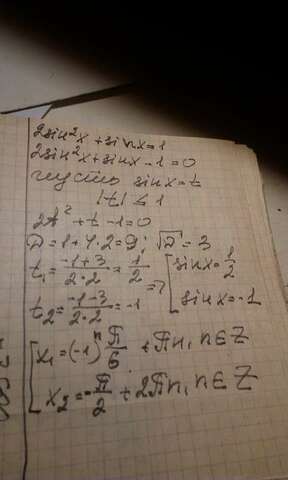 2sin²x + sinx = 1
2sin²x + sinx - 1 = 0
пусть sinx = t
|t| ≤ 1
2t² + t - 1 = 0
D = 1 + 4·2 = 9; √D = 3
t₁ = (-1+3)/(2·2) = 1/2 => [ sinx = 1/2
t₂ = (-1-3)/(2·2) = -1 [ sinx = -1
[ x₁ = (-1)ⁿ π/6 + πn, n ∈ Z
[ x₂ = -π/2 + 2πn, n ∈ Z